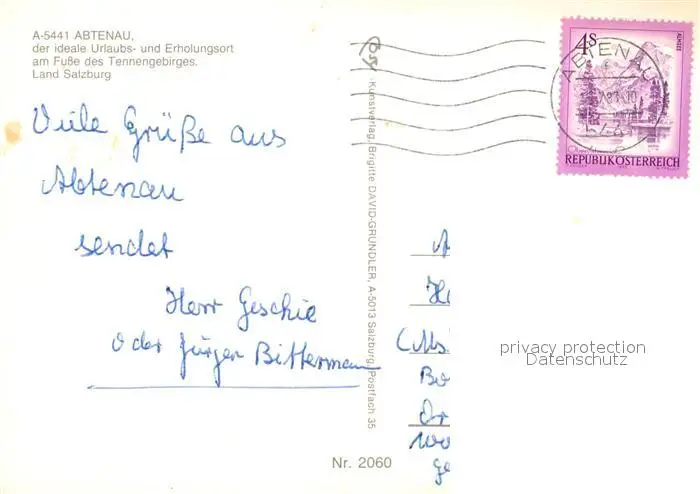 A-5441 ABTENAU,
der ideale Urlaubs- und Erholungsort
am Fuße des Tennengebirges.
Land Salzburg
Viele Grüße aus
Abtenau
sendet
Herr Geschie
oder Jürgen Bittermann
Kunstverlag Brigitte DAVID-GRÜNDLER, A-5013 Salzburg, Postfach 35
Nr. 2060
4s
ALMSEE
REPUBLIK ÖSTERREICH
ABTENAU
privacy protection
Datenschutz